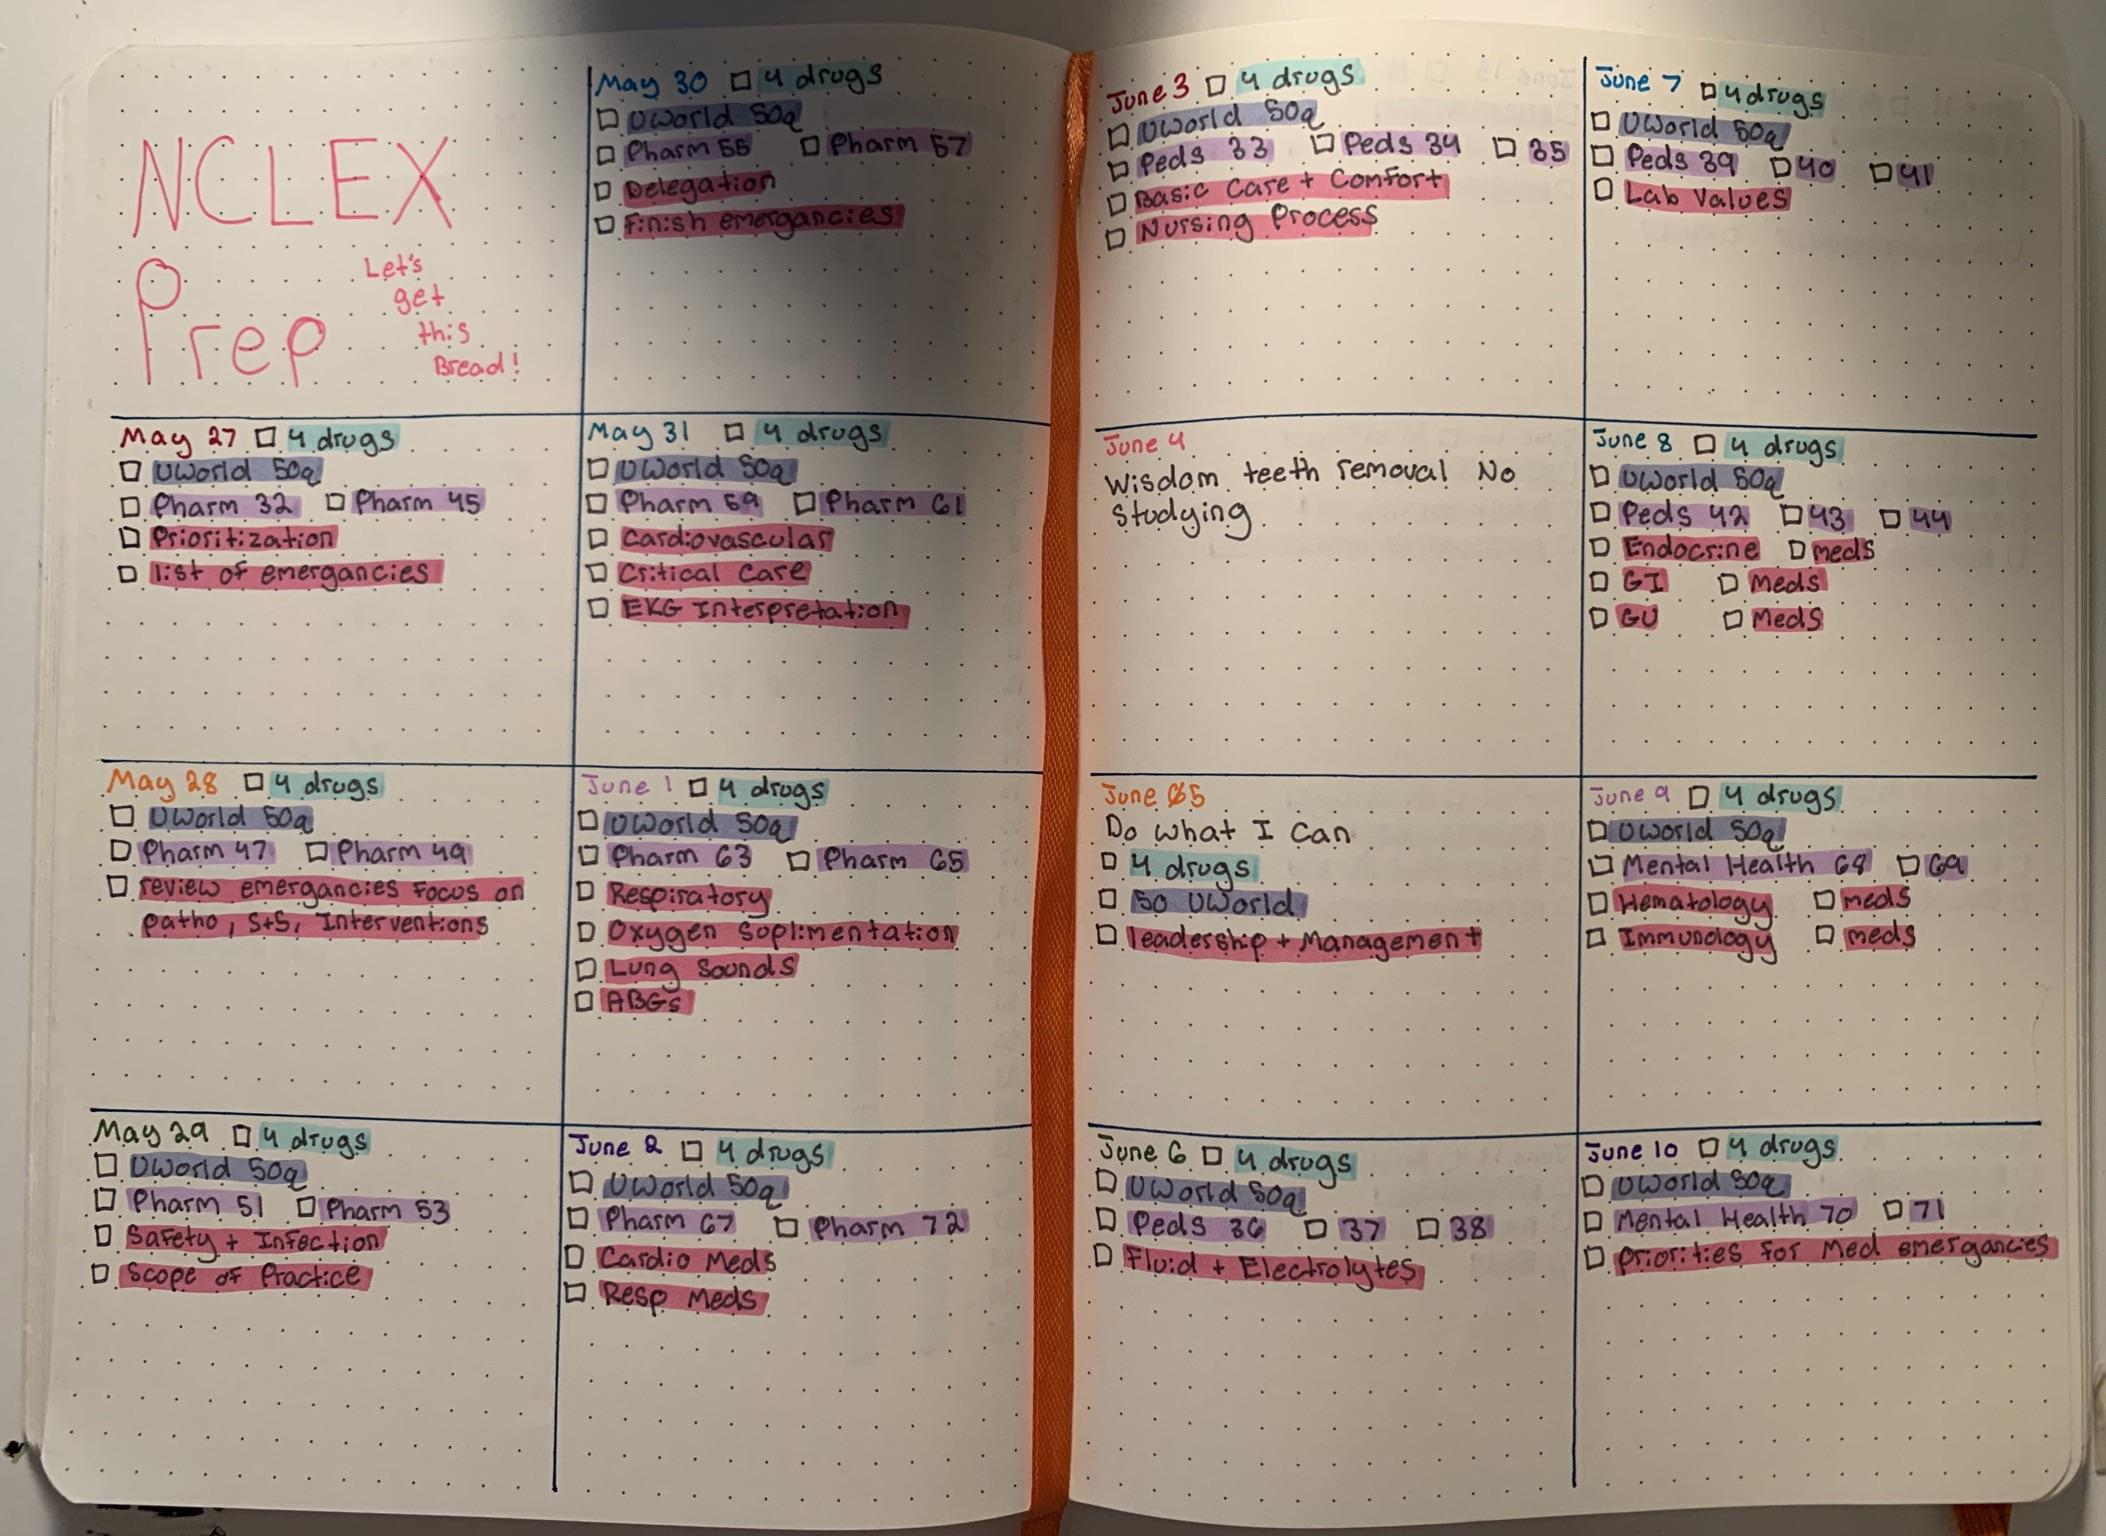 NCLEX
Prep
Let's
get
this
Bread!
May 27 □ 4 drugs
□ UWorld 50q
□ Pharm 32 □ Pharm 45
□ Prioritization
□ list of emergancies
May 28 □ 4 drugs
□ UWorld 50q
□ Pharm 47 □ Pharm 49
□ review emergancies focus on
patho, S+S, Interventions
May 29 □ 4 drugs
□ UWorld 50q
□ Pharm 51 □ Pharm 53
□ Safety + Infection
□ Scope of Practice
May 30 □ 4 drugs
□ UWorld 50q
□ Pharm 55 □ Pharm 57
□ Delegation
□ Finish emergancies
May 31 □ 4 drugs
□ UWorld 50q
□ Pharm 59 □ Pharm 61
□ Cardiovascular
□ Critical Care
□ EKG Interpretation
June 1 □ 4 drugs
□ UWorld 50q
□ Pharm 63 □ Pharm 65
□ Respiratory
□ Oxygen Suplimentation
□ Lung Sounds
□ ABGs
June 2 □ 4 drugs
□ UWorld 50q
□ Pharm 67 □ Pharm 72
□ Cardio Meds
□ Resp Meds
June 3 □ 4 drugs
□ UWorld 50q
□ Peds 33 □ Peds 34 □ 35
□ Basic Care + Comfort
□ Nursing Process
June 4
Wisdom teeth removal No
Studying
June 5
Do what I can
□ 4 drugs
□ 50 UWorld
□ leadership + Management
June 6 □ 4 drugs
□ UWorld 50q
□ Peds 36 □ 37 □ 38
□ Fluid + Electrolytes
June 7 □ 4 drugs
□ UWorld 50q
□ Peds 39 □ 40 □ 41
□ Lab Values
June 8 □ 4 drugs
□ UWorld 50q
□ Peds 42 □ 43 □ 44
□ Endocrine □ meds
□ GI □ Meds
□ GU □ Meds
June 9 □ 4 drugs
□ UWorld 50q
□ Mental Health 68 □ 69
□ Hematology □ meds
□ Immunology □ meds
June 10 □ 4 drugs
□ UWorld 50q
□ Mental Health 70 □ 71
□ Priorities for Med emergancies